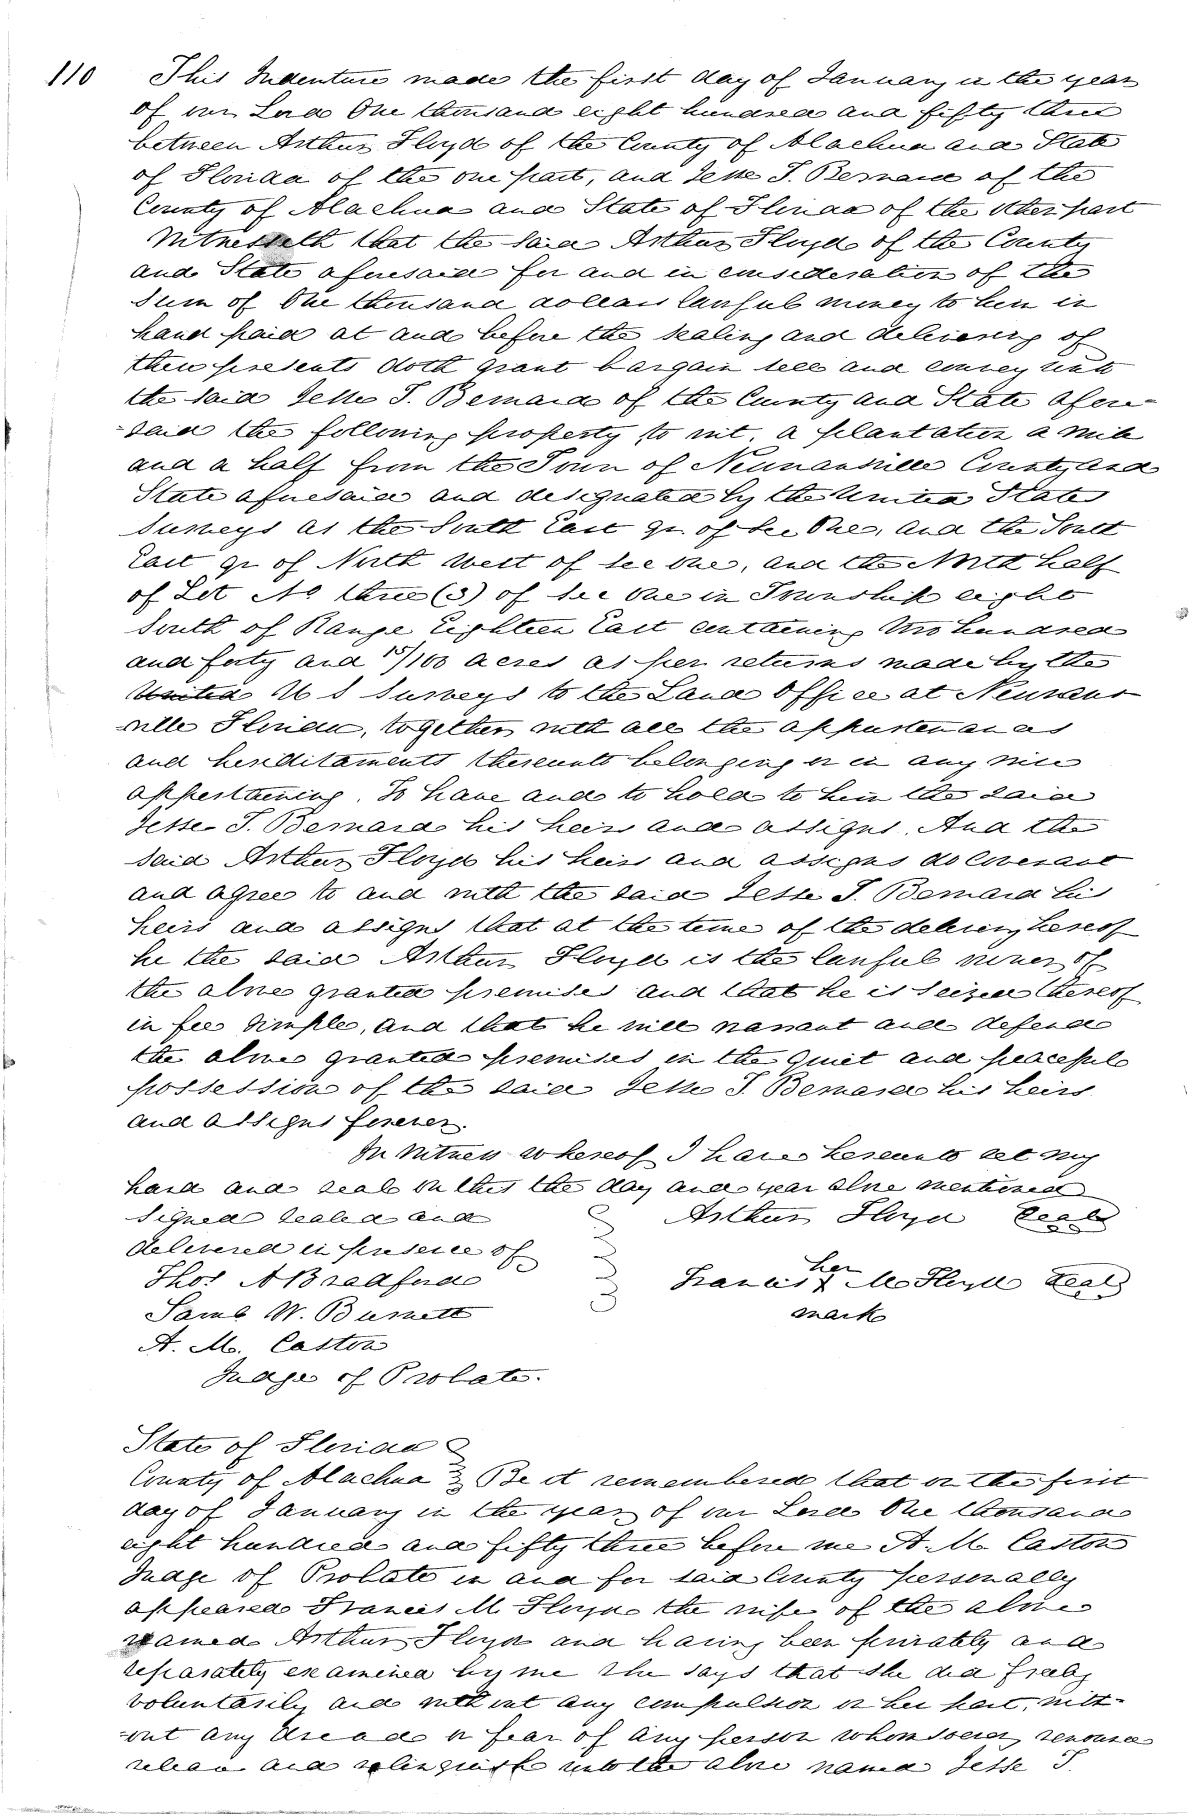 110 This Indenture made the first day of January in the year
of our Lord One thousand eight hundred and fifty three
between Arthur Floyd of the County of Alachua and State
of Florida of the one part, and Jesse T. Bernard of the
County of Alachua and State of Florida of the other part
Witnesseth that the said Arthur Floyd of the County
and State aforesaid for and in consideration of the
sum of One thousand dollars lawful money to him in
hand paid at and before the sealing and delivering of
these presents doth grant bargain sell and convey unto
the said Jesse T. Bernard of the County and State afore-
-said the following property to wit, a plantation a mile
and a half from the Town of Newnansville County and
State aforesaid and designated by the United States
Surveys as the South East qr. of Sec One, and the South
East qr of North West of Sec one, and the North half
of Lot No three (3) of Sec one in Township eight
South of Range Eighteen East containing two hundred
and forty and 15/100 acres as per returns made by the
United U S Surveys to the Land Office at Newnans
-ville Florida, together with all the appurtenances
and hereditaments thereunto belonging or in any wise
appertaining. To have and to hold to him the said
Jesse T. Bernard his heirs and assigns. And the
said Arthur Floyd his heirs and assigns do covenant
and agree to and with the said Jesse T. Bernard his
heirs and assigns that at the time of the delivery hereof
he the said Arthur Floyd is the lawful owner of
the above granted premises and that he is seized thereof
in fee simple, and that he will warrant and defend
the above granted premises in the quiet and peaceful
possession of the said Jesse T. Bernard his heirs
and assigns forever.
In Witness whereof I have hereunto set my
hand and seal on this the day and year above mentioned
Signed Sealed and Arthur Floyd Seal
delivered in presence of
Thos A Bradford her
Francis X M Floyd Seal
Saml W. Burnett mark
A. M. Caston
Judge of Probate.
State of Florida
County of Alachua Be it remembered that on the first
day of January in the year of our Lord One thousand
eight hundred and fifty three before me A. M. Caston
Judge of Probate in and for said County personally
appeared Francis M Floyd the wife of the above
named Arthur Floyd and having been privately and
separately examined by me she says that she did freely
voluntarily and without any compulsion on her part, with-
-out any dread or fear of any person whomsoever, renounce
release and relinquish unto the above named Jesse T.